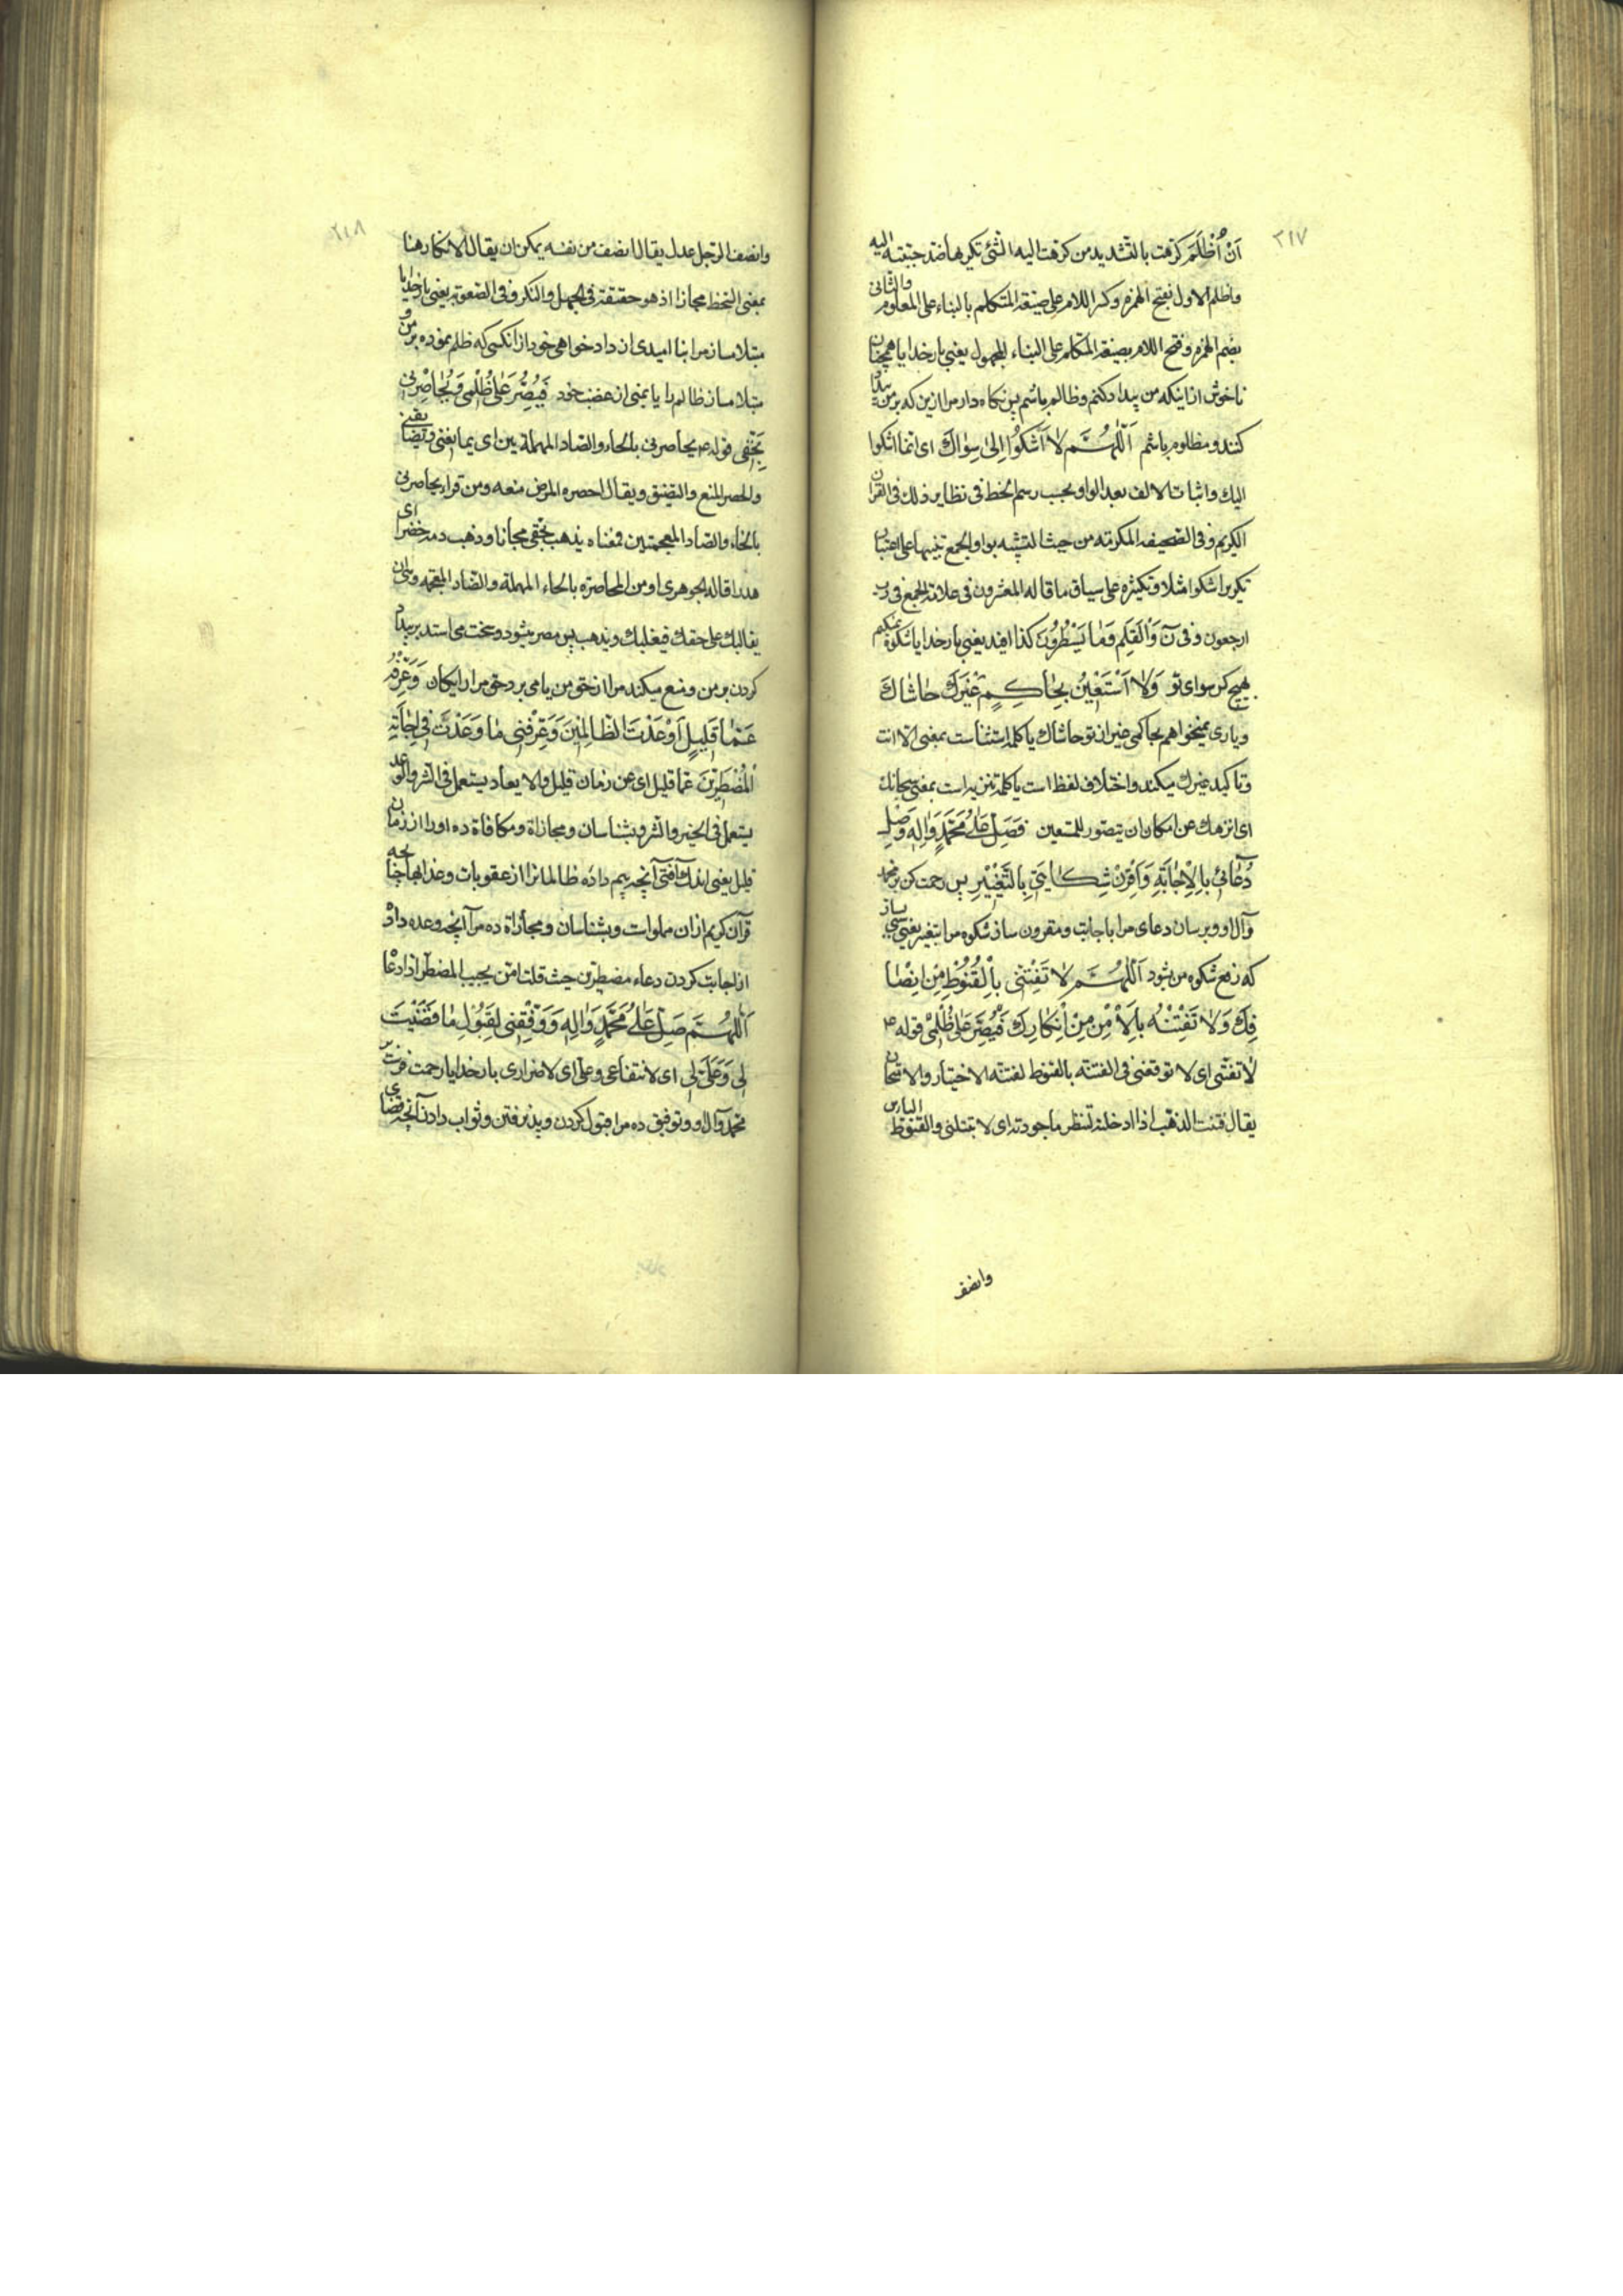 ۳۱۷
اَنْ اُظْلَمَ کرّهت بالتشدید من کرّهت الیه الشئ تکریها ضد حببته الیه
واظلم الاول بفتح الهمزه وکسر اللام علی صیغة المتکلم بالبناء علی المعلوم والثانی
بضم الهمزه وفتح اللام بصیغة المتکلم علی البناء للمجهول یعنی بارخدایا همچنان
ناخوش از اینکه من بیداد کنم وظالم باشم پس نگاه دار مرا ازین که بر من بیداد
کنند ومظلوم باشم اَللّٰهُمَّ لا اَشْکُوا اِلیٰ سِوٰاكَ ای انما اشکوا
الیك واثبات الالف بعد الواو بحسب رسم الخط فی نظایر ذلك فی القران
الکریم وفی الصحیفه المکرمه من حیث التشبیه بواو الجمع تنبیها علی
تکریر اشکوا مثلا وتکثیره علی سیاق ما قاله المفسرون فی علاقة الجمع فی رب
ارجعون وفی نۤ وَالْقَلَمِ وَمٰا یَسْطُرُونَ کذا افید یعنی بارخدایا شکوه نمیکنم
بهیچ کس سوای تو وَلا اَسْتَعینُ بِحٰاکِمٍ غَیْرِكَ حٰاشٰاكَ
ویاری نمیخواهم بحاکمی غیر از تو حاشاك یا کلمه استثناست بمعنی الا انت
وتاکید غیرك میکند واختلاف لفظ است یا کلمه تنزیه است بمعنی سبحانك
ای انزهك عن امکان ان یتصور للمستعین فَصَلِّ عَلیٰ مُحَمَّدٍ وَاٰلِهِ وَصِلْ
دُعٰائی بِالْاِجٰابَةِ وَاَقْرِنْ شِکٰایَتی بِالتَّغْییرِ پس رحمت کن بر محمد
وآل او وبرسان دعای مرا باجابت ومقرون ساز شکوه مرا بتغییر یعنی
که رفع شکوه من بشود اَللّٰهُمَّ لا تَفْتِنّی بِالْقُنُوطِ مِنْ اِنْصٰا
فِكَ وَلا تَفْتِنْهُ بِالْاَمْنِ مِنْ اِنْکٰارِكَ فَیُصِرَّ عَلیٰ ظُلْمی قوله ع
لا تفتنی ای لا توقعنی فی الفتنه بالقنوط لفتنه الاختبار والامتحان
یقال فتنت الذهب اذا ادخلته لتنظر ما جودته ای لا تبتلنی والقنوط الیاس
وانصف
۳۱۸
وانصف الرجل عدل یقال انصف من نفسه یمکن ان یقال الانکار هنا
بمعنی السخط مجازا اذ هو حقیقة فی الجهل والنکر وفی الصعوبة یعنی بارخدایا
مبتلا مساز مرا بنا امیدی از دادخواهی خود از آنکسی که ظلم نموده بر من و
مبتلا مساز ظالم را یا بمنی از غضب خود فَیُصِرَّ عَلیٰ ظُلْمی وَیُحٰاصِرَنی
بِحَقّی قوله ع یحاصرنی بالحاء والصاد المهملة ین ای یمانعنی ویضایقنی
والحصر المنع والتضیق ویقال احصره المرض منعه ومن قراء یخاضرنی
بالخاء والضاد المعجمتین فمعناه یذهب بحقی مجانا وذهب دمه خضرا ای
هدرا قاله الجوهری او من المحاضره بالحاء المهملة والضاد المعجمه
یغالبك علی حقك فیغلبك ویذهب پس مصر بشود وسخت می استد بر بیداد
کردن بر من ومنع میکند مرا از حق من یا می برد حق مرا رایکان وَعَرِّفْهُ
عَمّٰا قَلیلٍ اَوْعَدْتَ الظّٰالِمینَ وَعَرِّفْنی مٰا وَعَدْتَ فی اِجٰابَةِ
الْمُضْطَرّینَ عما قلیل ای عن زمان قلیل والایعاد یستعمل فی الشر والوعد
یستعمل فی الخیر والشر وبشناسان ومجازاة ومکافاة ده او را از زمان
قلیل یعنی اندك آفتی آنچه بیم داده ظالمانرا از عقوبات وعذابها
قرآن کریم ازان مملوات وبشناسان ومجازاة ده مرا آنچه وعده داد
از اجابت کردن دعاء مضطرین حیث قلت امن یجیب المضطر اذا دعا
اَللّٰهُمَّ صَلِّ عَلیٰ مُحَمَّدٍ وَاٰلِهِ وَوَفِّقْنی لِقَبُولِ مٰا قَضَیْتَ
لی وَعَلَیَّ لی ای لانتفاعی وعلی ای لاضراری بارخدایا رحمت فرست
محمد وآل او وتوفیق ده مرا قبول کردن وپذیرفتن وثواب دادن آنچه